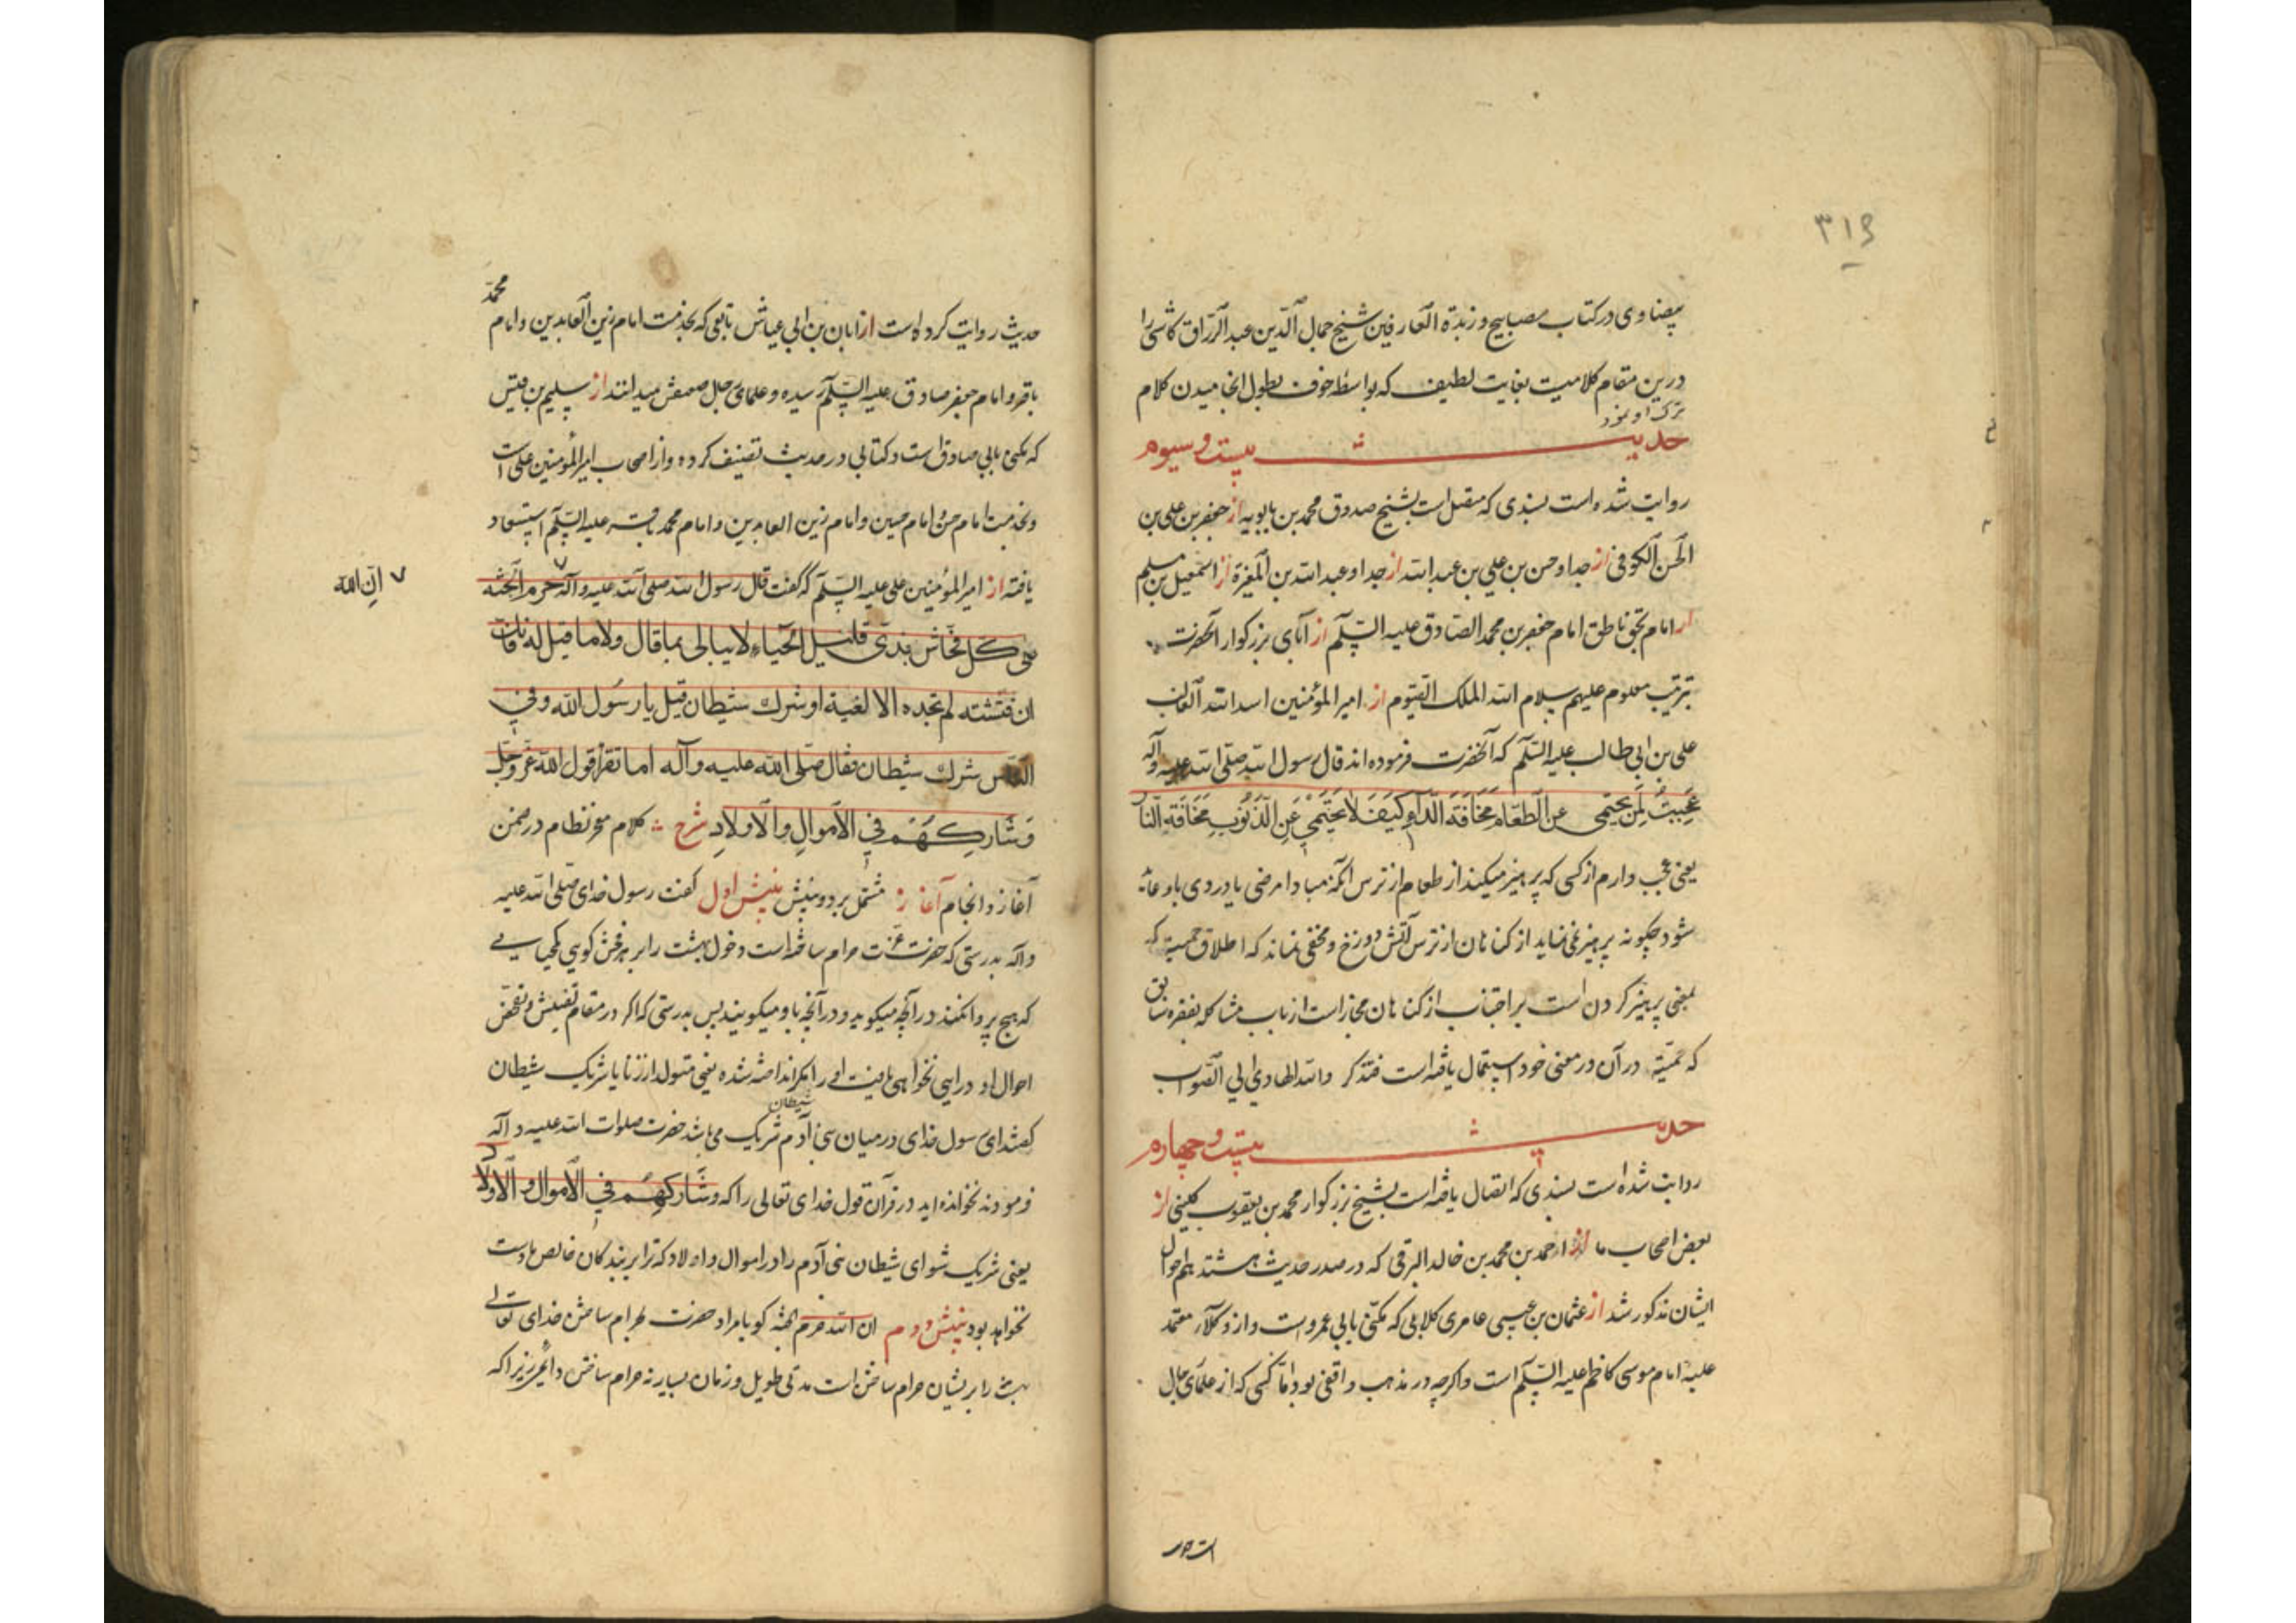 ۳۱۶
بیضاوی در کتاب مصابیح و زبدة العارفین شیخ جمال الدین عبد الرزاق کاشی را
درین مقام کلامیست بغایت لطیف که بواسطه خوف بطول انجامیدن کلام
ترک او نمود
حدیث بیست و سیوم
روایت شده است بسندی که متصل است بشیخ صدوق محمد بن بابویه از جعفر بن علی بن
الحسن الکوفی از جد او حسن بن علی بن عبد الله از جد او عبد الله بن المغیرة از اسمعیل بن مسلم
از امام بحق ناطق امام جعفر بن محمد الصادق علیه السلم از آبای بزرکوار آنحضرت
بترتیب معلوم علیهم سلام الله الملک القیوم از امیر المؤمنین اسد الله الغالب
علی بن ابی طالب علیه السلم که آنحضرت فرموده اند قال رسول الله صلی الله علیه وآله
عَجِبتُ لِمَن یَحتَمی عن الطَّعام مَخَافَةَ الدَّآءِ کَیفَ لا یَحتَمی عَنِ الذُّنُوبِ مَخَافَةَ النَّار
یعنی عجب دارم از کسی که پرهیز میکند از طعام از ترس آنکه مبادا مرضی یا دردی باو عاید
شود چکونه پرهیز نمی نماید از کناهان از ترس آتش دوزخ و مخفی نماند که اطلاق حمیة که
بمعنی پرهیز کردن است بر اجتناب از کناهان مجاز است از باب مشاکله بفقره سابق
که حمیة در آن در معنی خود استعمال یافته است فتذکر والله الهادی الی الصواب
حدیث بیست و چهارم
روایت شده است بسندی که اتصال یافته است بشیخ بزرکوار محمد بن یعقوب کلینی از
بعض اصحاب ما از احمد بن محمد بن خالد البرقی که در صدر حدیث هشتم احوال
ایشان مذکور شد از عثمان بن عیسی عامری کلابی که مکنی بابی عمرو است و از وکلآء معتمد
علیه امام موسی کاظم علیه السلم است و اکرچه در مذهب واقفی بود اما کسی که از علمآی رجال
حدیث روایت کرده است از ابان بن ابی عیاش تابعی که بخدمت امام زین العابدین و امام محمد
باقر و امام جعفر صادق علیه السلم رسیده و علمای رجال ضعیفش میدانند از سلیم بن قیس
که مکنی بابی صادق است و کتابی در حدیث تصنیف کرده و از اصحاب امیر المؤمنین علی است
و بخدمت امام حسن و امام حسین و امام زین العابدین و امام محمد باقر علیه السلم استسعاد
یافته از امیر المؤمنین علی علیه السلم که گفت قال رسول الله صلی الله علیه وآله حرم الجنة
ان الله
علی کل فحاش بذی قلیل الحیاء لا یبالی بما قال ولا ما قیل له فانک
ان فتشته لم تجده الا لغیة او شرک شیطان قیل یا رسول الله وفی
الناس شرک شیطان فقال صلی الله علیه وآله اما تقرأ قول الله عز وجل
وَشَارِکهُم فی الاَموالِ والاَولادِ شرح کلام معجز نظام در ضمن
آغاز و انجام آغاز مشتمل بر دو بینش بینش اول کفت رسول خدای صلی الله علیه
وآله بدرستی که حضرت عزت حرام ساخته است دخول بهشت را بر هر فحش کویی کم حیایی
که هیچ پروا نکند در آنچه میکوید و در آنچه باو میکویند پس بدرستی که اکر در مقام تفتیش و تفحص
احوال او درایی نخواهی یافت او را مکر انداخته شده یعنی متولد از زنا یا شریک شیطان
کفتند ای رسول خدای در میان بنی آدم شیطان شریک می باشد حضرت صلوات الله علیه وآله
فرمودند نخوانده اید در قرآن قول خدای تعالی را که وشَارکهُم فی الاَموال والاَولاد
یعنی شریک شو ای شیطان بنی آدم را در اموال و اولاد که ترا بر بندکان خالص ما دست
نخواهد بود بینش دوم ان الله حرم الجنة کویا مراد حضرت از حرام ساختن خدای تعالی
بهشت را بر ایشان حرام ساختن است مدتی طویل و زمان بسیار نه حرام ساختن دائمی زیرا که